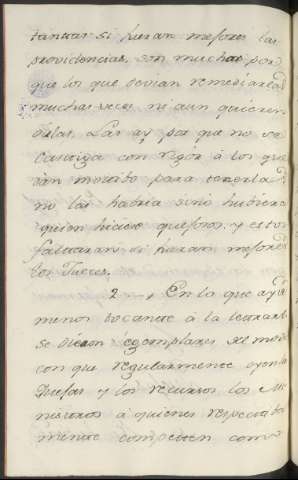 tantas si fueran mejores las
providencias, son muchas por
que los que devian remediarlas
muchas veces ni aun quieren
oirlas. Las ay por que no se
castiga con rigor à los que
dan motivo para tenerlas
no las habria sino hubiera
quien hiciese quejosos, y estos
faltaran si fueran mejores
los Jueces.
2 En lo que ay
menos tocante à la
se vieran egemplares del modo
con que regularmente oyen las
Quejas y los recursos los Mi
nistros à quienes respectiba
mente competen como